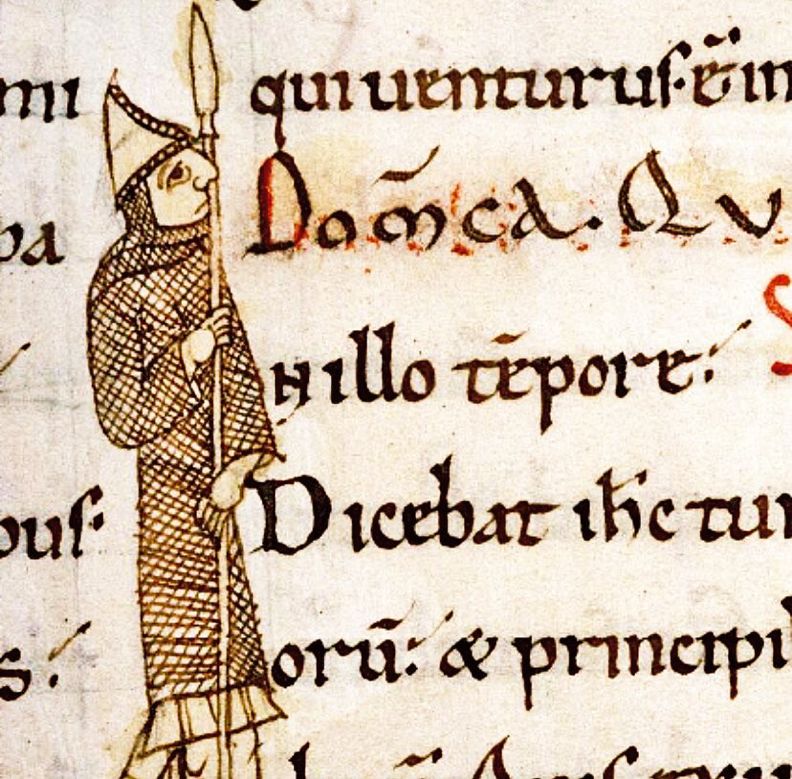 mi
us·
s:
qui uenturus· ē in
Dom̄ca. Qu
N illo tēpore:
Dicebat ih̄c tur
orū: & principi